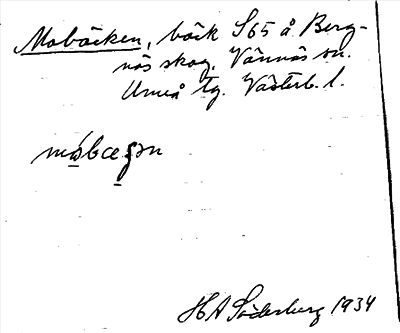 Mobäcken, bäck S65 å Berg-
näs skog, Vännäs sn.
Umeå tg. Västerb. l.
HA Söderberg 1934